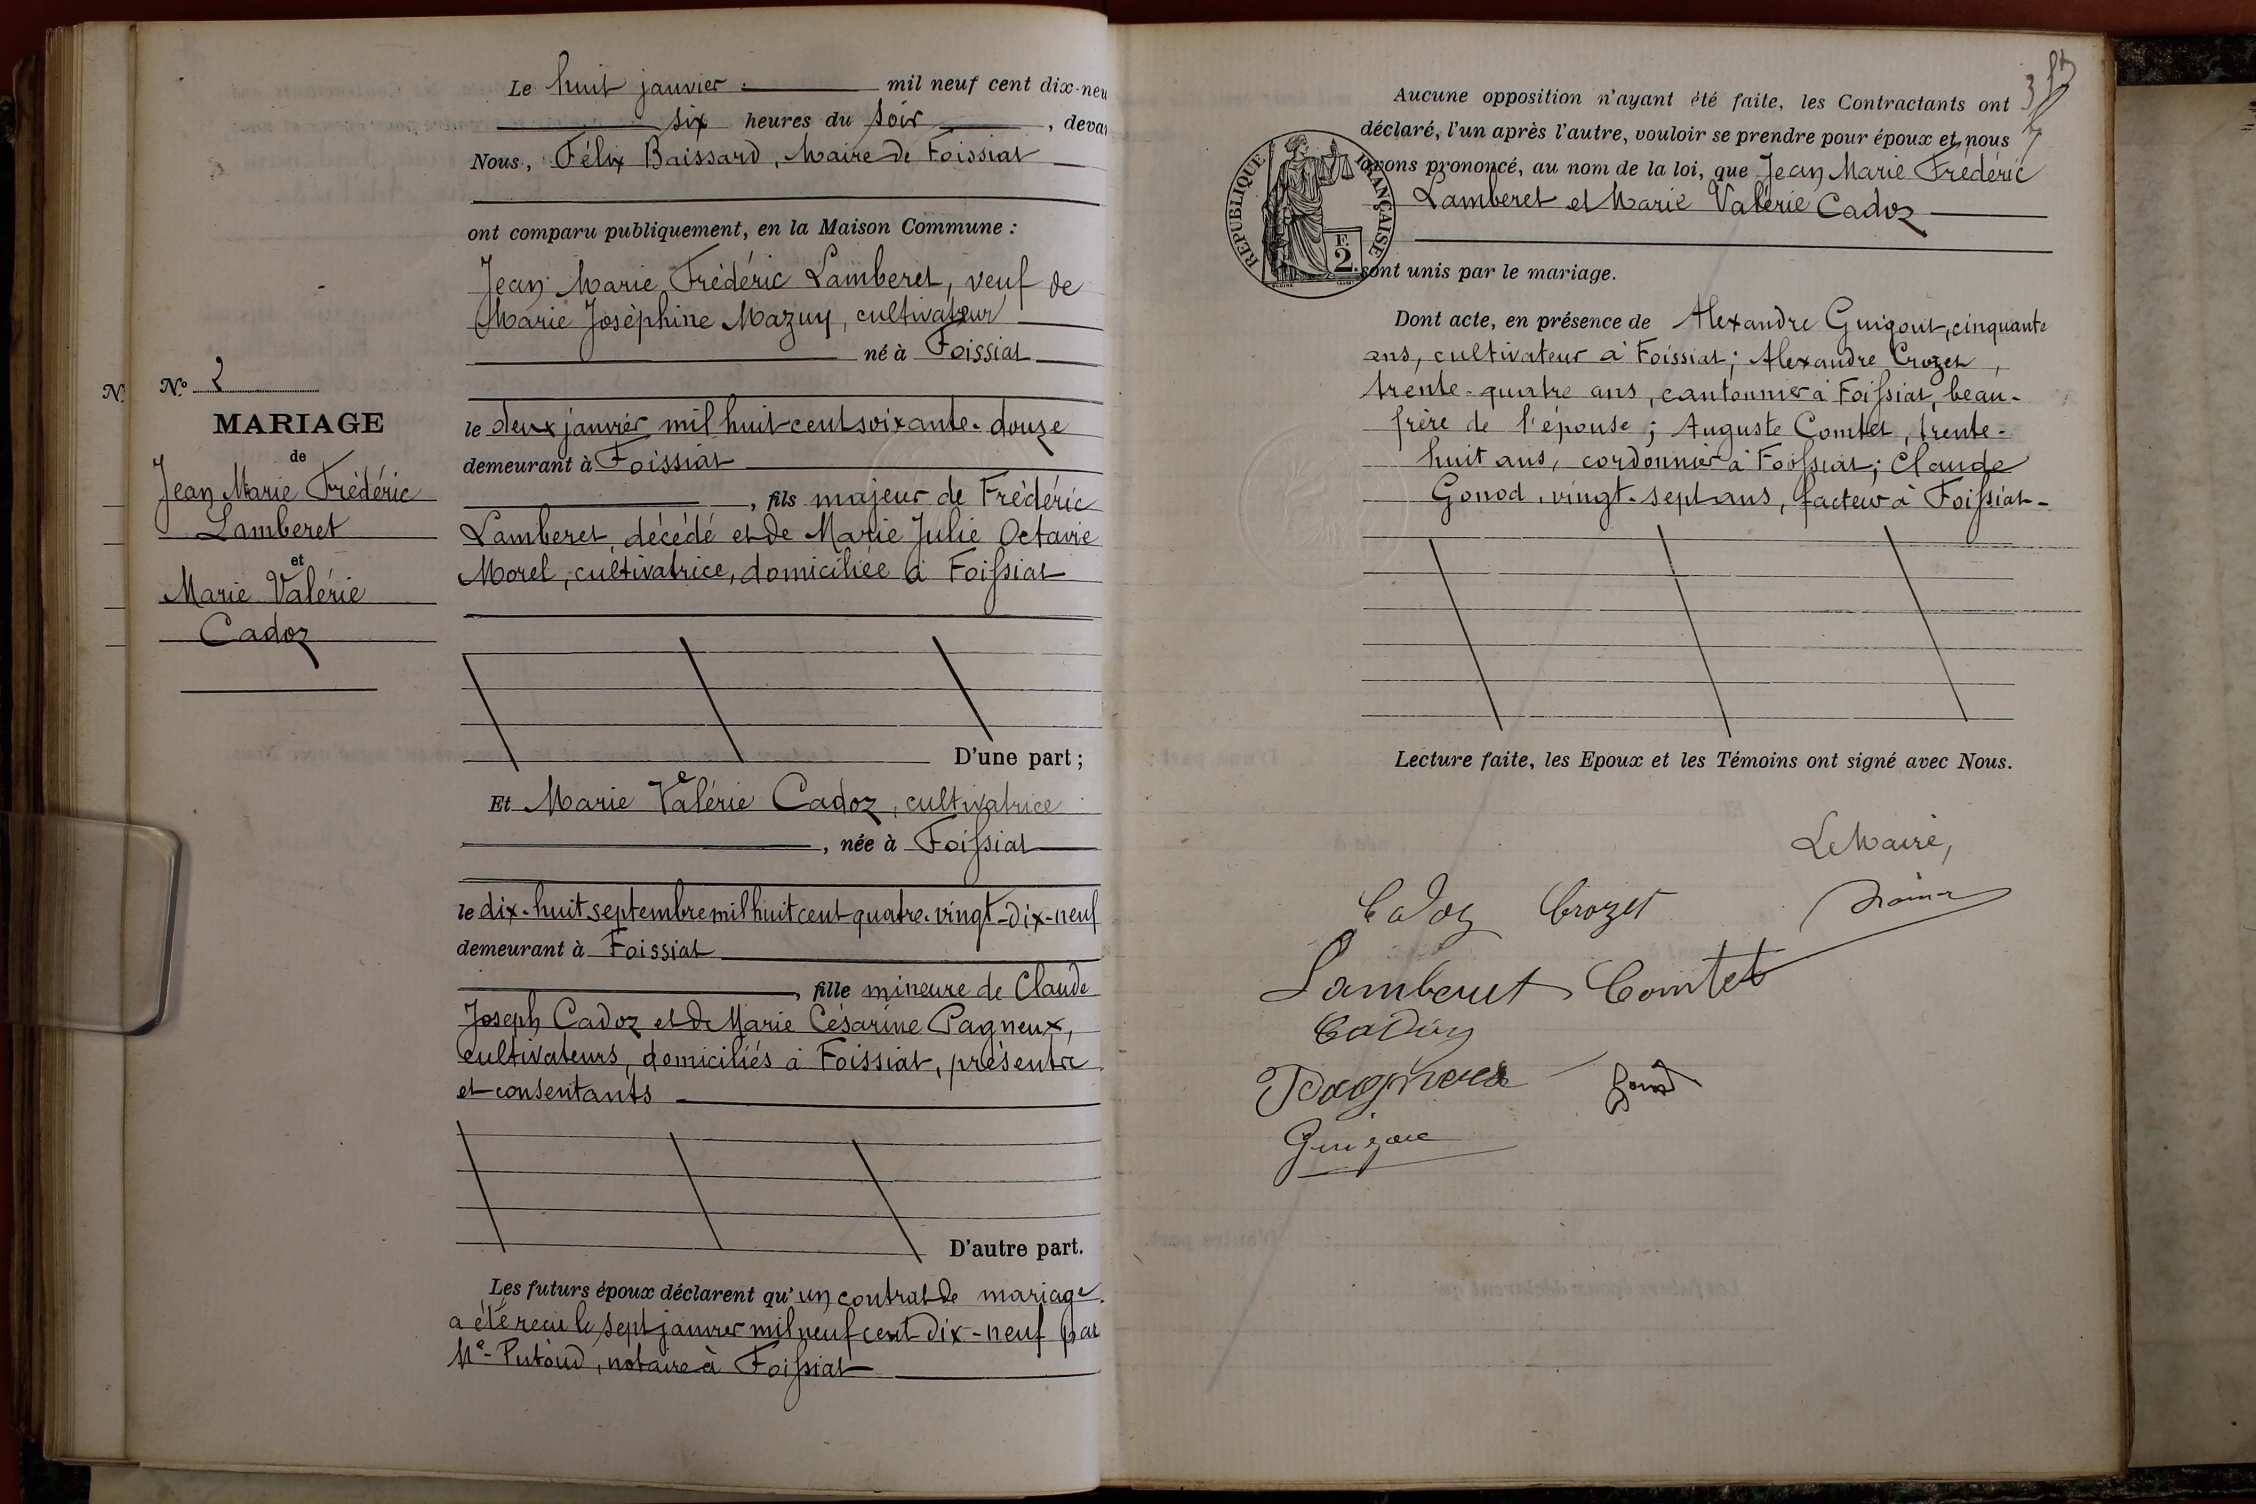 Le huit janvier mil neuf cent dix-neu
six heures du soir, deva
Nous, Félix Baissard, Maire de Foissiat
ont comparu publiquement, en la Maison Commune :
Jean Marie Frédéric Lamberet, veuf de
Marie Joséphine Mazuy, cultivateur
né à Foissiat
le deux janvier mil huit cent soixante-douze
demeurant à Foissiat
, fils majeur de Frédéric
Lamberet, décédé et de Marie Julie Octavie
Morel, cultivatrice, domiciliée à Foissiat
D'une part ;
Et Marie Valérie Cadoz, cultivatrice
, née à Foissiat
le dix-huit septembre mil huit cent quatre-vingt-dix-neuf
demeurant à Foissiat
, fille mineure de Claude
Joseph Cadoz et de Marie Césarine Pagneux,
cultivateurs, domiciliés à Foissiat, présents
et consentants
D'autre part.
Les futurs époux déclarent qu'un contrat de mariage
a été reçu le sept janvier mil neuf cent dix-neuf par
Me Putoud, notaire à Foissiat
N.
No. 2
MARIAGE
de
Jean Marie Frédéric
Lamberet
et
Marie Valérie
Cadoz
3
Aucune opposition n'ayant été faite, les Contractants ont
déclaré, l'un après l'autre, vouloir se prendre pour époux et nous
avons prononcé, au nom de la loi, que Jean Marie Frédéric
Lamberet et Marie Valérie Cadoz
sont unis par le mariage.
REPUBLIQUE FRANÇAISE
F.
2.
Dont acte, en présence de Alexandre Guigout, cinquante
ans, cultivateur à Foissiat ; Alexandre Crozet,
trente-quatre ans, cantonnier à Foissiat, beau-
frère de l'épouse ; Auguste Comtet, trente-
huit ans, cordonnier à Foissiat ; Claude
Gonod, vingt-sept ans, facteur à Foissiat-
Lecture faite, les Epoux et les Témoins ont signé avec Nous.
Le Maire,
Cadoz Crozet
Lamberet Comtet
Cadoz
Pagneux Gonod